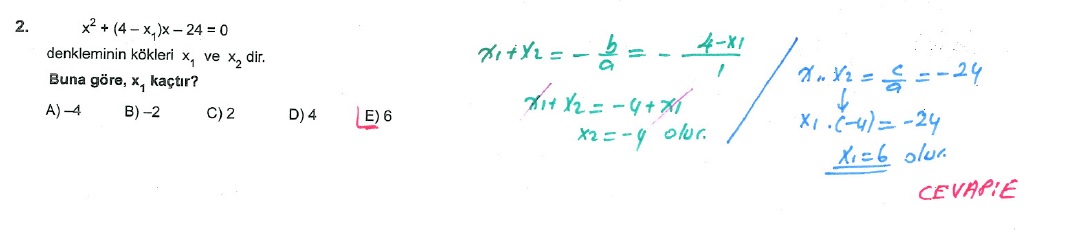 2. x² + (4 – x₁)x – 24 = 0
denkleminin kökleri x₁ ve x₂ dir.
Buna göre, x₁ kaçtır?
A) –4 B) –2 C) 2 D) 4 E) 6
x₁+x₂ = - b/a = - 4-x₁/1
x₁+x₂ = -4+x₁
x₂ = -4 olur.
x₁.x₂ = c/a = -24
x₁.(-4) = -24
x₁=6 olur.
CEVAP:E